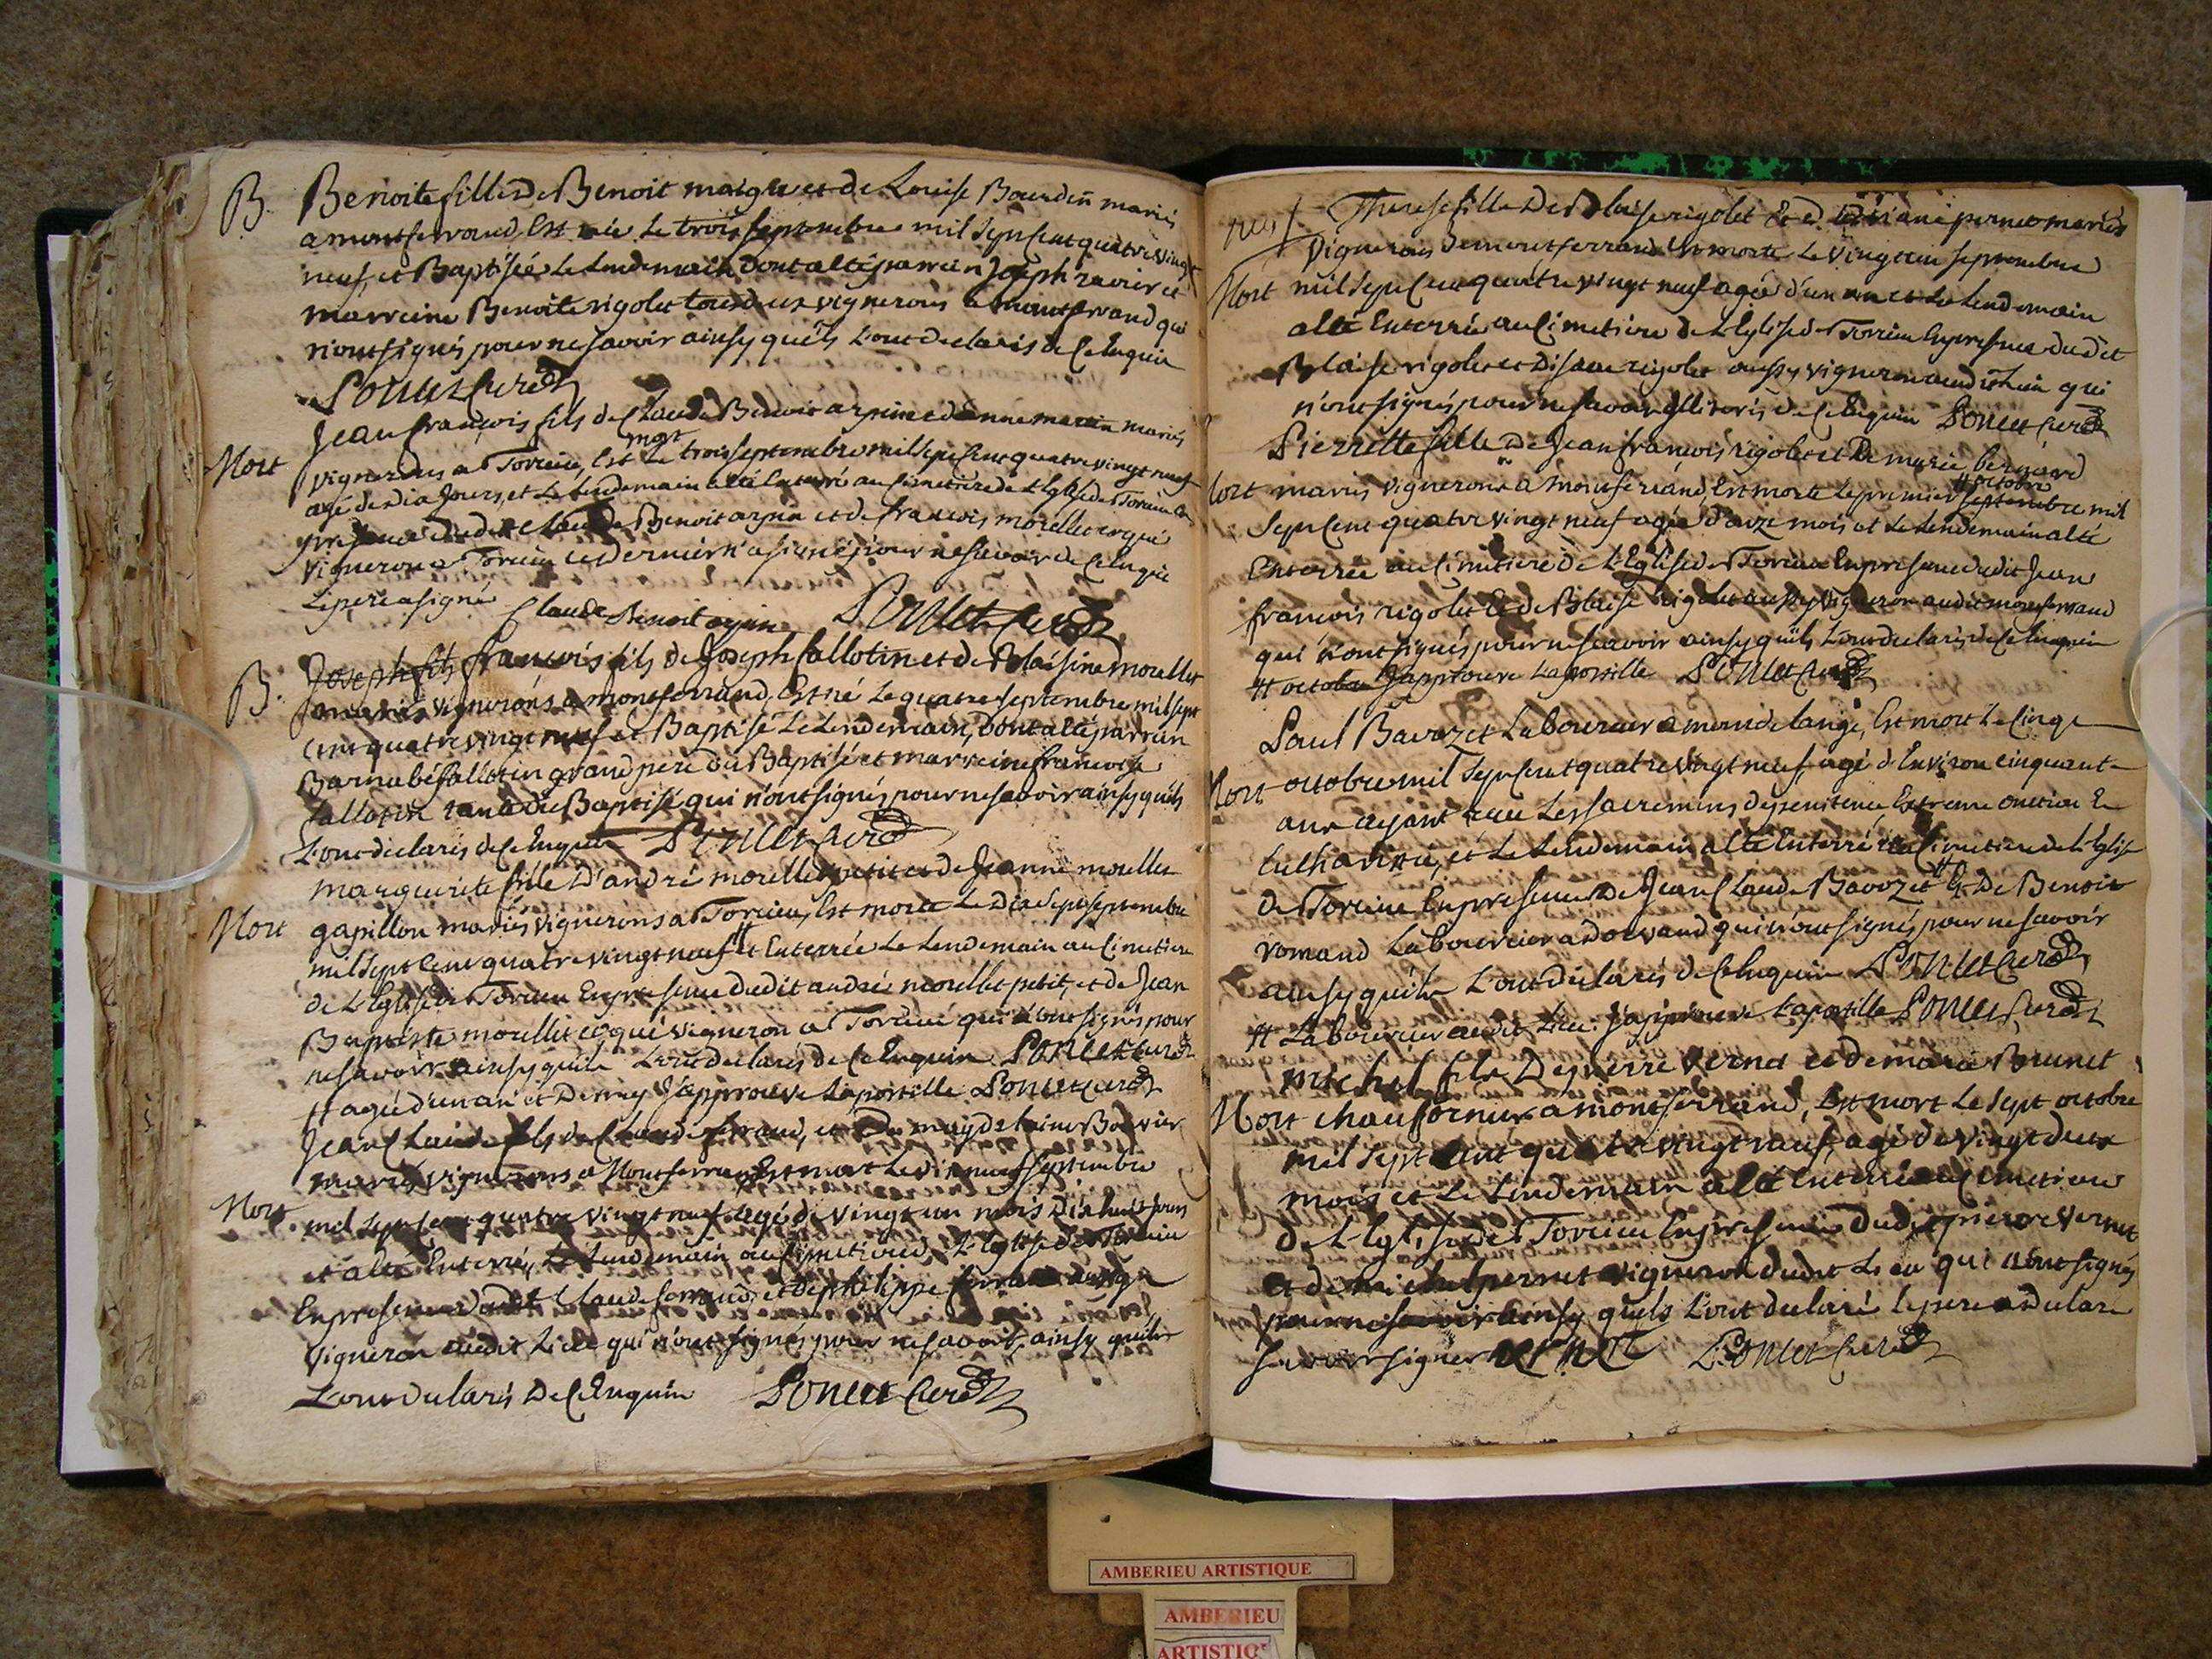 B. Benoite fille de Benoit maigre et de Louise Bourdin mariés
a montferrand, Est née Le trois septembre mil sept cent quatre vingt
neuf, et Baptisée Le Lendemain dont a été parrein Joseph ravier et
marreine Benoite rigolet tous deux vignerons a montferrand qui
n'ont signés pour ne savoir ainsy qu'ils L'ont declarés de ce Enquis
Poncet Curé
Jean françois fils de Claude Benoit arpin et d'anne marin mariés
mort
Mort vignerons a Torcieu, Est Le trois septembre mil sept cent quatre vingt neuf
agé de dix Jours, et Le Lendemain a été Enterré au Cimetiere de L'Eglise de Torcieu En
presence dudit Claude Benoit arpin et de françois morellet coqué
vigneron a Torcieu ce dernier n'a signé pour ne savoir de ce Enquis
Le pere a signé Claude Benoit arpin Poncet Curé
B. Joseph fils françois fils de Joseph fallotin et de Blaisine morellet
mariés vignerons a montferrand, Est né Le quatre septembre mil sept
cent quatre vingt neuf et Baptisé Le Lendemain, dont a été parrein
Barnabé fallotin grand pere du Baptisé et marreine francoise
fallotin tante du Baptisé qui n'ont signés pour ne savoir ainsy qu'ils
L'ont declarés de ce Enquis Poncet Curé
marguerite fille d'andré morellet petit et de Jeanne morellet
Mort gapillon mariés vignerons a Torcieu, Est morte Le Dix sept septembre
mil sept cent quatre vingt neuf # et Enterrée Le Lendemain au Cimetiere
de L'Eglise de Torcieu En presence dudit andré morellet petit, et de Jean
Baptiste morellet coqué vigneron a Torcieu qui n'ont signés pour
ne savoir ainsy qu'ils L'ont declarés de ce Enquis Poncet Curé
# agée d'un an et Demy J'approuve L'apostille Poncet Curé
Jean Claude fils de Claude ferrand, et De magdelaine Bouvier
mariés vignerons a Montferrand Est mort Le dix neuf septembre
Mort. mil sept cent quatre vingt neuf agé de vingt un mois Dix huit Jours
et a été Enterré, Le Lendemain au Cimetiere de L'Eglise de Torcieu
En presence dudit Claude ferrand, et De philippe ferrand aussy
vigneron audit Lieu qui n'ont signés pour ne savoir, ainsy qu'ils
L'ont declarés De ce Enquis Poncet Curé
Therese fille De Blaise rigolet et d' pernet mariés
vignerons demontferrand Est morte Le vingt un septembre
Mort mil sept cent quatre vingt neuf agée d'un an et Le Lendemain
a été Enterrée au Cimetiere de L'Eglise de Torcieu En presence dudit
Blaise rigolet et D' rigolet aussy vigneron audit Lieu qui
n'ont signés pour ne savoir de ce Enquis Poncet Curé
Pierrette fille De Jean françois rigolet et De marie bernard
# octobre
Mort mariés vignerons a montferrand, Est morte Le premier septembre mil
sept cent quatre vingt neuf agée d'onze mois et Le Lendemain a été
Enterrée au Cimetiere de L'Eglise de Torcieu En presence dudit Jean
françois rigolet Et de Blaise rigolet aussy vigneron audit montferrand
qui n'ont signés pour ne savoir ainsy qu'ils L'ont declarés de ce Enquis
# octobre J'approuve L'apostille Poncet Curé
Paul Bavozet Laboureur a mont de lange, Est mort Le Cinq
Mort octobre mil sept cent quatre vingt neuf, agé d'Environ cinquante
ans ayant reçu Les sacremens de penitence, Extreme onction Et
Leucharistie, et Le Lendemain a été Enterré au Cimetiere de L'Eglise
de Torcieu En presence De Jean Claude Bavozet # Et De Benoit
romand Laboureur a dorvand qui n'ont signés pour ne savoir
ainsy qu'ils L'ont declarés de ce Enquis Poncet Curé
# Laboureur audit Lieu. J'approuve L'apostille Poncet Curé
michel fils De pierre vernet et de marie Brunet
Mort chaufornier a montferrand, Est mort Le sept octobre
mil sept cent quatre vingt neuf, agé de vingt deux
mois et Le Lendemain a été Enterré au Cimetiere
de L'Eglise de Torcieu En presence Dudit pierre vernet
et de michel pernet vigneron dudit Lieu qui n'ont signés
pour ne savoir ainsy qu'ils L'ont declaré le pere a declaré
savoir signer vernet Poncet Curé
AMBERIEU ARTISTIQUE
AMBERIEU
ARTISTIQUE